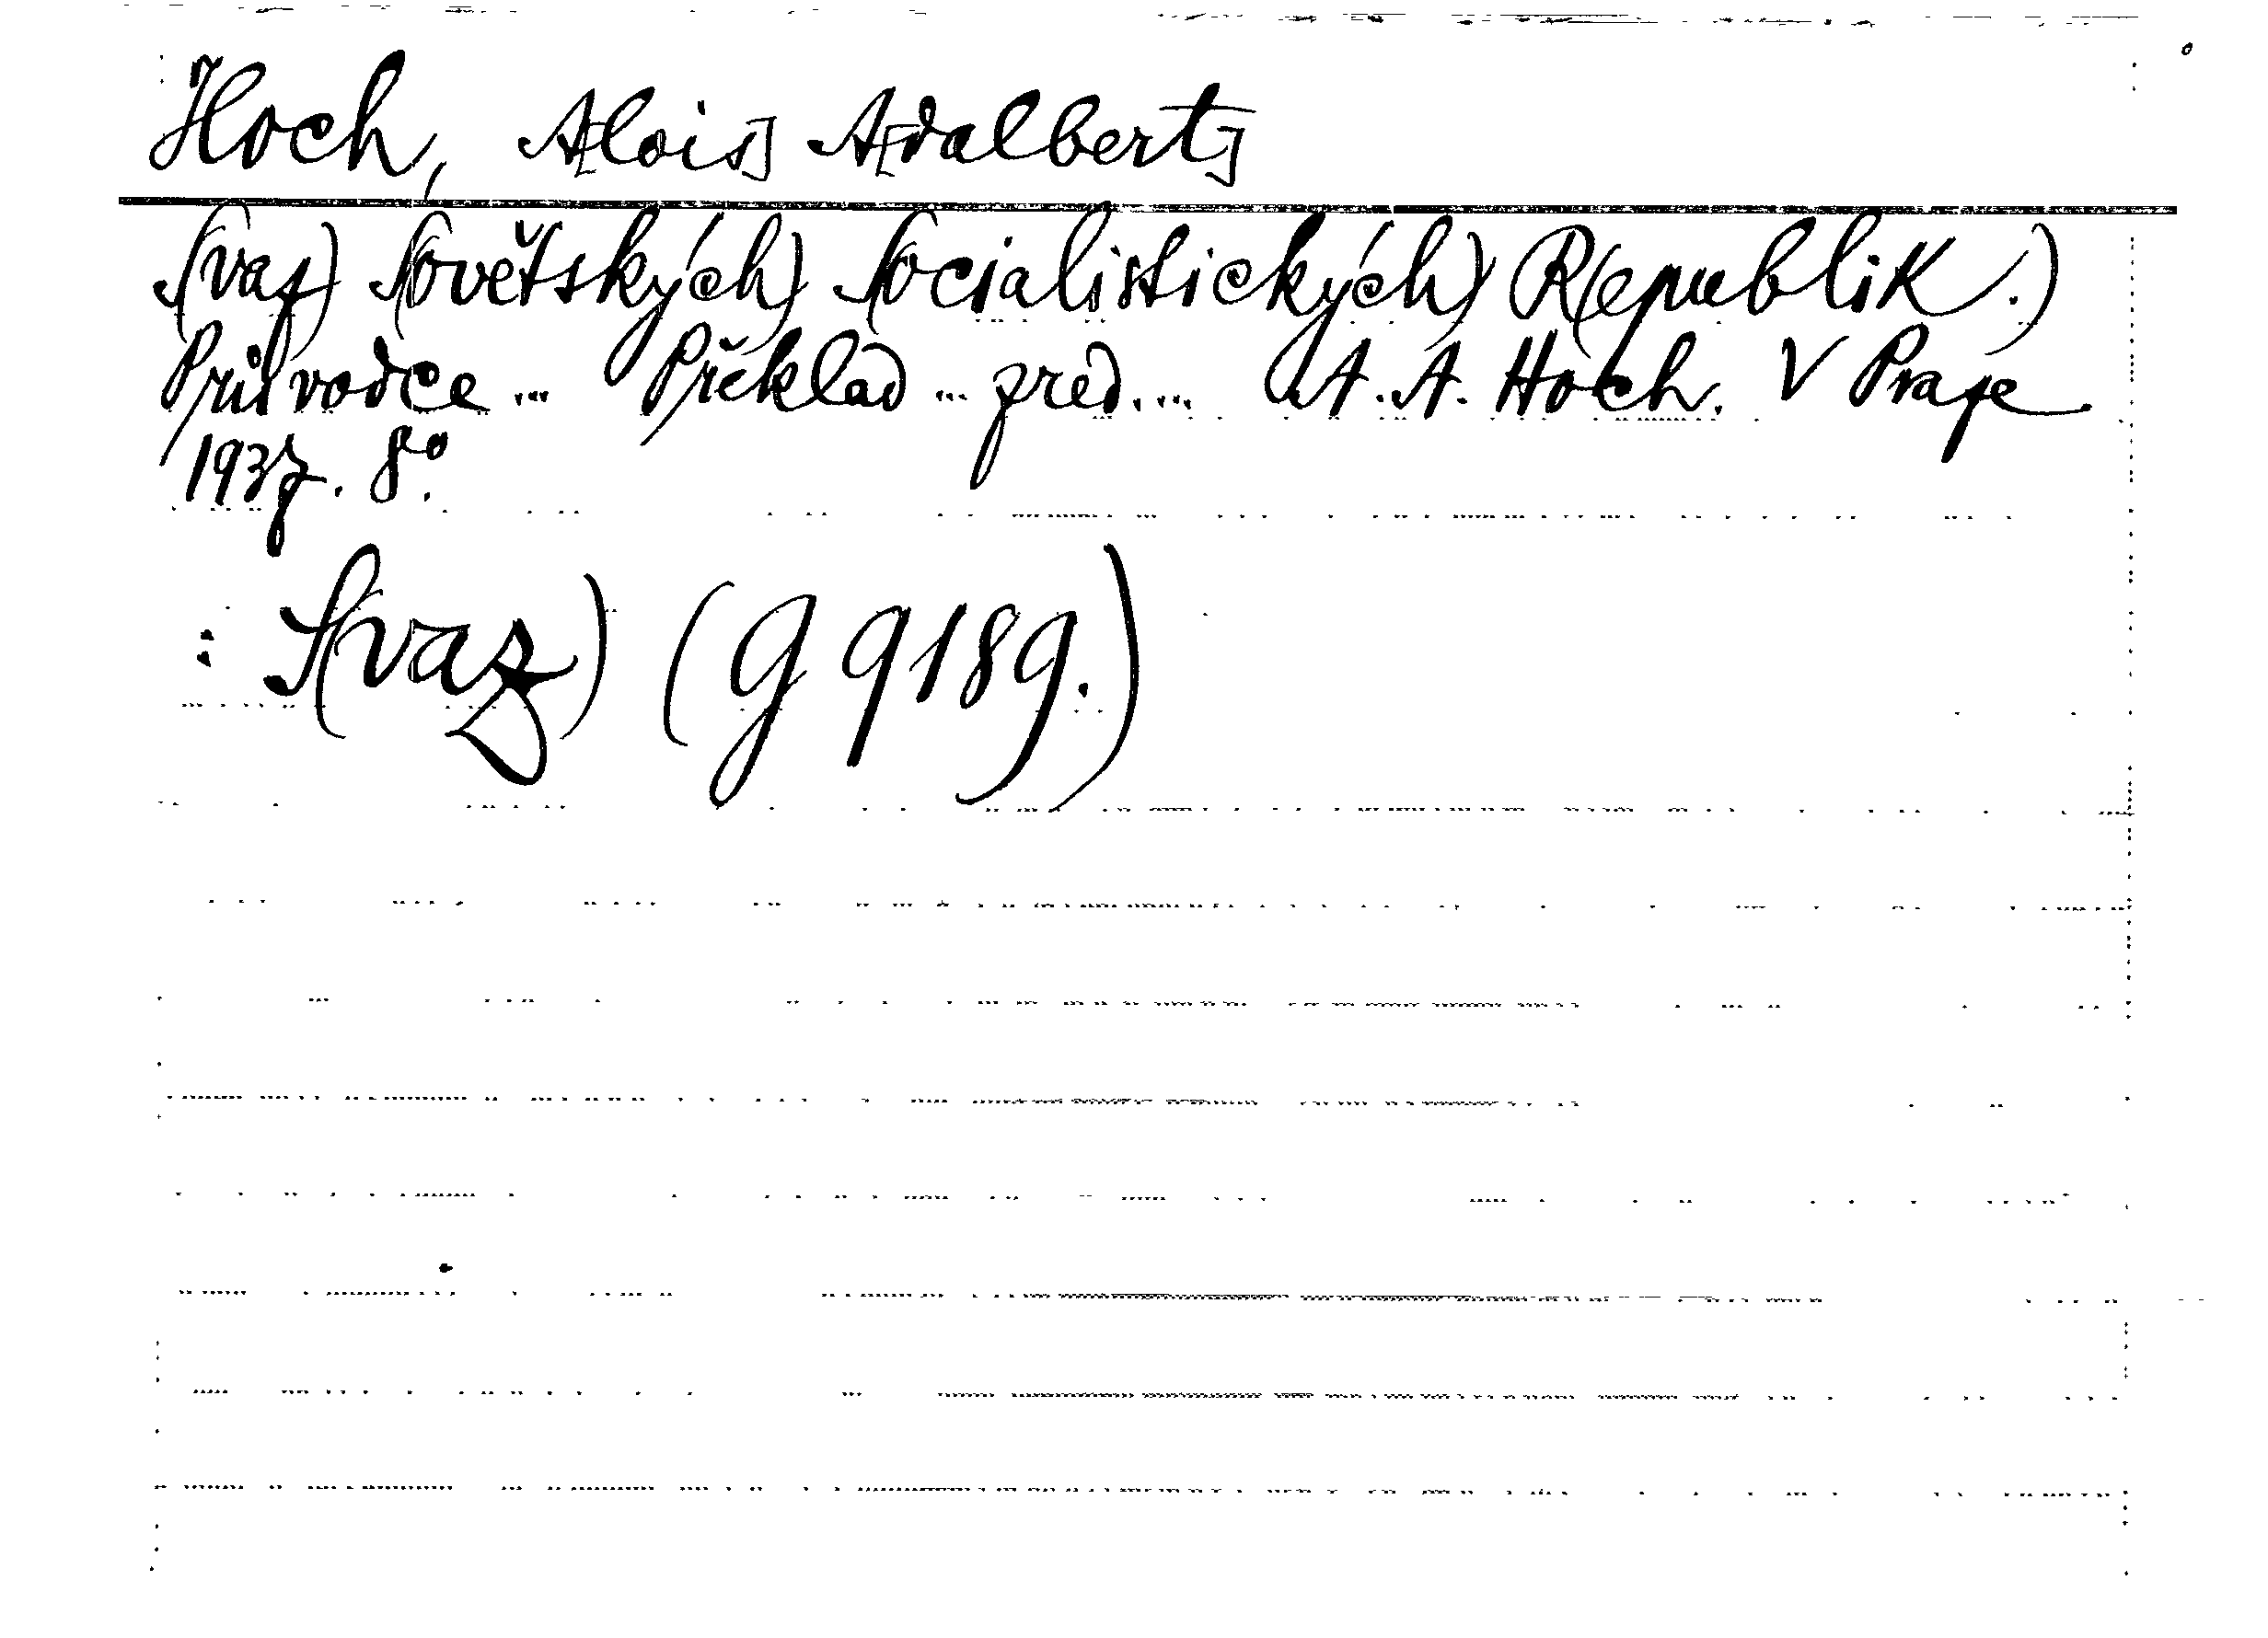 Hoch, A[lois] A[dalbert]
S(vaz) S(ovětských) S(ocialistických) R(epublik.)
Průvodce ... Překlad ... před. ... A. A. Hoch. V Praze
1937. 8°.
: S(vaz) (G 9189.)